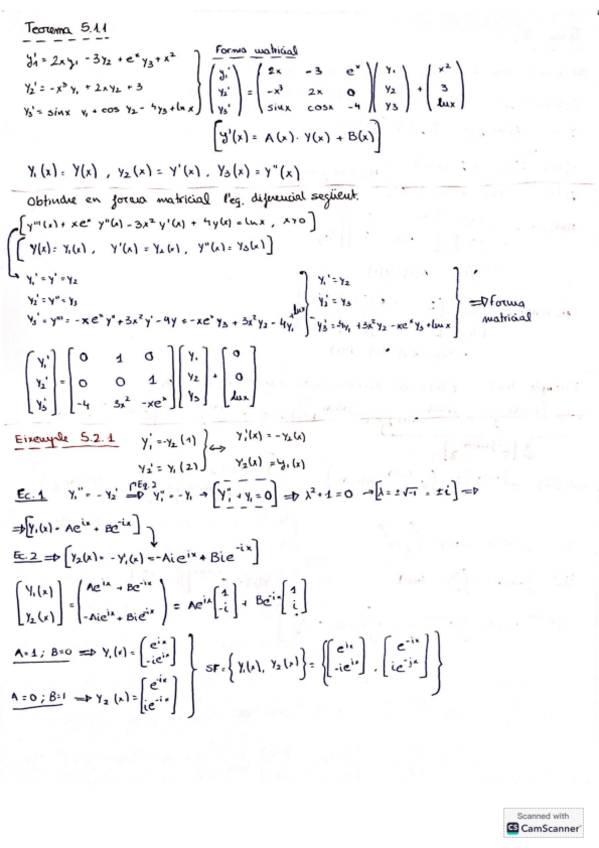 Teorema 5.1.1
y₁' = 2x y₁ - 3y₂ + eˣ y₃ + x²
y₂' = -x³ y₁ + 2x y₂ + 3
y₃' = sinx y₁ + cos y₂ - 4y₃ + lnx
Forma matricial
(y₁' y₂' y₃') = (2x -3 eˣ; -x³ 2x 0; sinx cosx -4) (y₁ y₂ y₃) + (x² 3 lnx)
[y'(x) = A(x) · Y(x) + B(x)]
Y₁(x) = Y(x) , Y₂(x) = Y'(x) , Y₃(x) = Y''(x)
Obtindre en forma matricial l'eq. diferencial següent.
[y'''(x) + xeˣ y''(x) - 3x² y'(x) + 4y(x) = lnx , x>0]
[Y(x) = Y₁(x) , Y'(x) = Y₂(x) , Y''(x) = Y₃(x)]
Y₁' = Y' = Y₂
Y₂' = Y'' = Y₃
Y₃' = Y''' = -xeˣ y'' + 3x² y' - 4y = -xeˣ y₃ + 3x² y₂ - 4y₁ + lnx
Y₁' = Y₂
Y₂' = Y₃
Y₃' = -4y₁ + 3x² y₂ - xeˣ y₃ + lnx
⇒ Forma matricial
[Y₁' Y₂' Y₃'] = [0 1 0; 0 0 1; -4 3x² -xeˣ] [Y₁ Y₂ Y₃] + [0 0 lnx]
Eixemple 5.2.1
Y₁' = -Y₂ (1)
Y₂' = Y₁ (2)
↔ Y₁'(x) = -Y₂(x)
Y₂'(x) = Y₁(x)
Ec. 1 Y₁'' = -Y₂' ⇒ (Eq. 2) Y₁'' = -Y₁ → [Y₁'' + Y₁ = 0] ⇒ λ² + 1 = 0 → [λ = ±√-1 = ±i] ⇒
⇒ [Y₁(x) = Aeⁱˣ + Be⁻ⁱˣ]
Ec. 2 ⇒ [Y₂(x) = -Y₁'(x) = -Aieⁱˣ + Bie⁻ⁱˣ]
[Y₁(x) Y₂(x)] = (Aeⁱˣ + Be⁻ⁱˣ; -Aieⁱˣ + Bie⁻ⁱˣ) = Aeⁱˣ [1 -i] + Be⁻ⁱˣ [1 i]
A=1 ; B=0 ⇒ Y₁(x) = [eⁱˣ -ieⁱˣ]
A=0 ; B=1 ⇒ Y₂(x) = [e⁻ⁱˣ ie⁻ⁱˣ]
SF = {Y₁(x), Y₂(x)} = {[eⁱˣ -ieⁱˣ] , [e⁻ⁱˣ ie⁻ⁱˣ]}
Scanned with
CS CamScanner